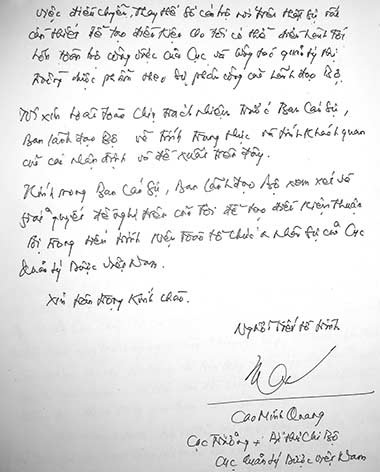 việc điều chuyển, thay thế số cán bộ nói trên thật sự rất
cần thiết để tạo điều kiện cho tôi có thể điều hành tốt
hơn toàn bộ công việc của Cục và công tác quản lý thị
trường dược phẩm theo sự phân công của Lãnh đạo Bộ.
Tôi xin hoàn toàn chịu trách nhiệm trước Ban Cán sự,
Ban lãnh đạo Bộ về tính trung thực và tính khách quan
của các nhận định và đề xuất trên đây.
Kính mong Ban Cán sự, Ban lãnh đạo Bộ xem xét và
giải quyết đề nghị trên của tôi để tạo điều kiện thuận
lợi trong tiến trình kiện toàn tổ chức và nhân sự của Cục
Quản lý Dược Việt Nam.
Xin trân trọng kính chào.
Người viết tờ trình
Cao Minh Quang
Cục trưởng + Bí thư Chi Bộ
Cục Quản lý Dược Việt Nam